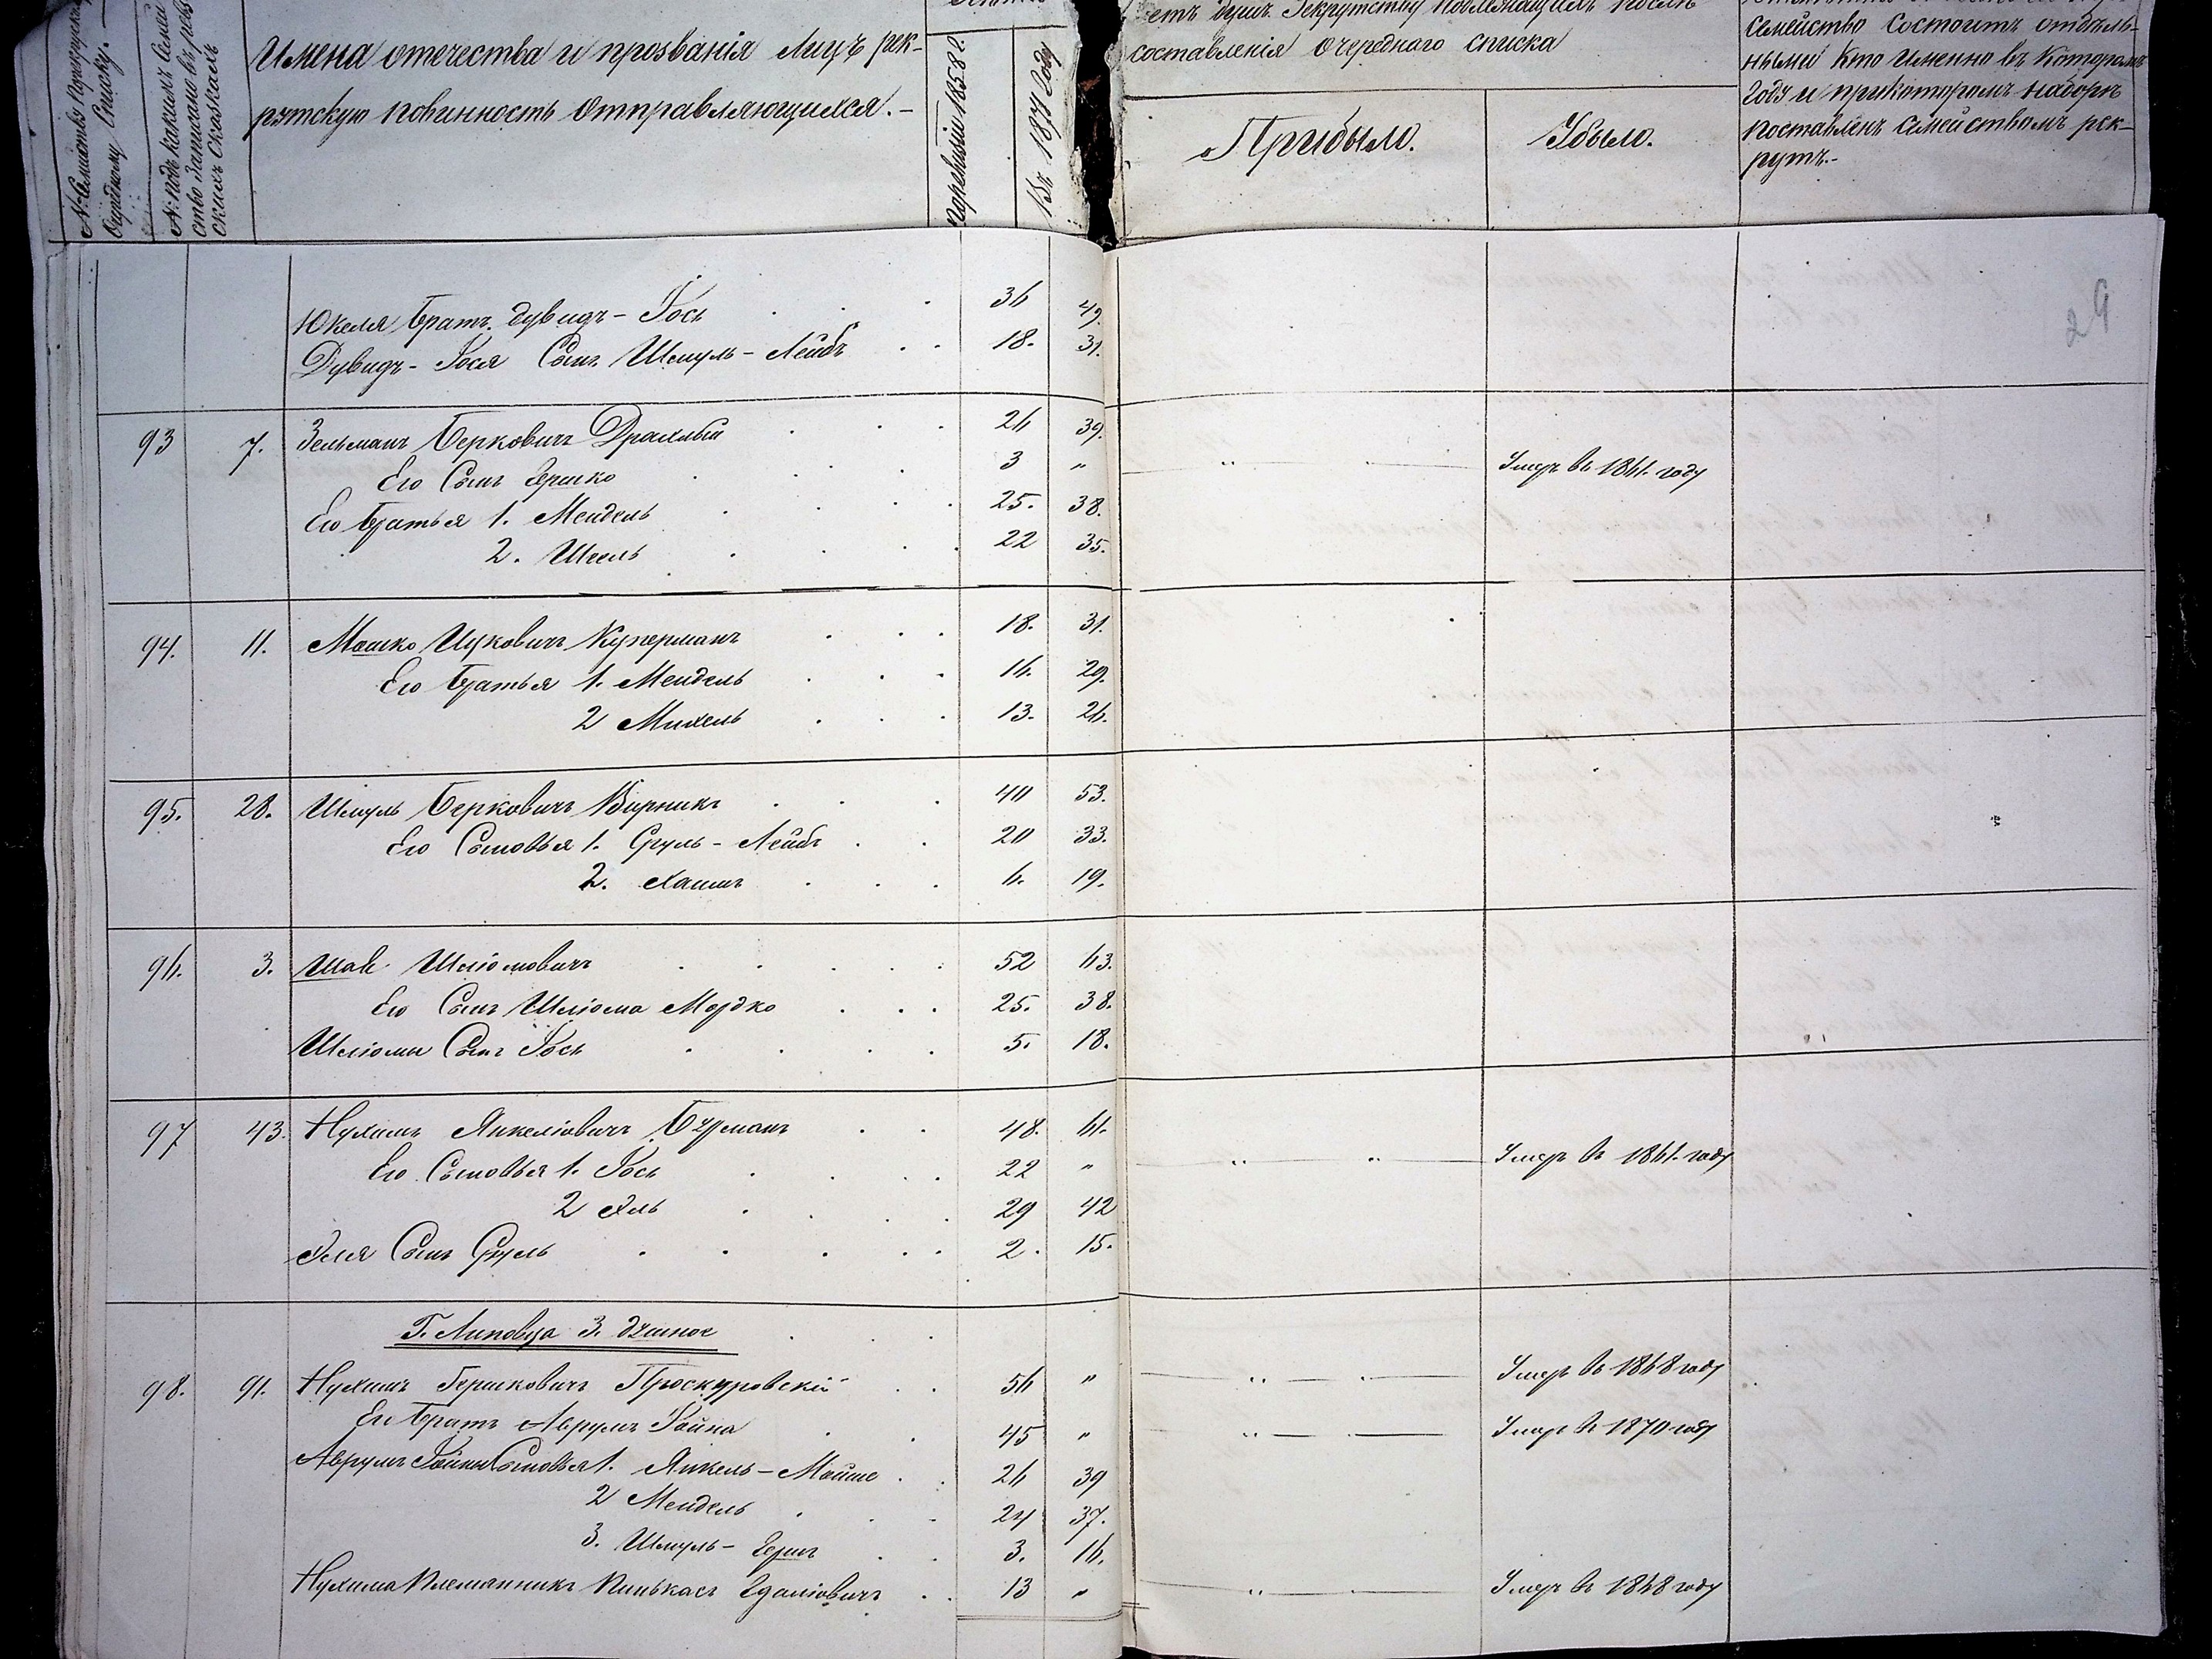 № Семейство
Очередному Списку.
№ Подъ какимъ Семей
ство записано въ реви
скихъ Сказкахъ
Имена отечества и прозванія лицъ рек-
рутскую повинность отправляющихся.-
1858 г.
Въ 1871 Году
составленія очереднаго списка
Прибыло.
Убыло.
Семейство состоитъ отдѣль-
ными Кто именно въ Которомъ
Году и прикоторомъ наборѣ
поставленъ Семействомъ рек-
рутъ.-
29
Юкеля братъ Дувидъ-Іось 36 49.
Дувидъ-Іося Сынъ Шмуль-Лейбъ 18. 31.
93 7. Зельманъ Берковичъ Драхлый 26 39.
Его Сынъ Гершко 3 " Умеръ въ 1861. году
Его братья 1. Мендель 25. 38.
2. Шеель 22 35.
94. 11. Мошко Ицковичъ Куперманъ 18. 31.
Его братья 1. Мендель 16. 29.
2 Михель 13. 26.
95. 28. Шмуль Берковичъ Вирникъ 40 53.
Его Сыновья 1. Сруль-Лейбъ 20 33.
2. Хаимъ 6. 19.
96. 3. Шая Шліомовичъ 52 63.
Его Сынъ Шліома Мордко 25. 38.
Шліомы Сынъ Іось 5. 18.
97 43. Нухимъ Янкеліовичъ Бурманъ 48. 61.
Его Сыновья 1. Іось 22 " Умеръ въ 1861. году
2 Эль 29 42
Эля Сынъ Сруль 2. 15.
Г. Липовца 3. душное
98. 91. Нухимъ Гершковичъ Проскуровскій 56 " Умеръ въ 1868 году
Его братъ Аврумъ Іойна 45 " Умеръ въ 1870 году
Аврумъ Іойны Сыновья 1. Янкель-Мойше 26 39
2 Мендель 24 37.
3. Шмуль-Гершъ 3. 16.
Нухима Племянникъ Пинькасъ Гдаліовичъ 13 " Умеръ въ 1868 году